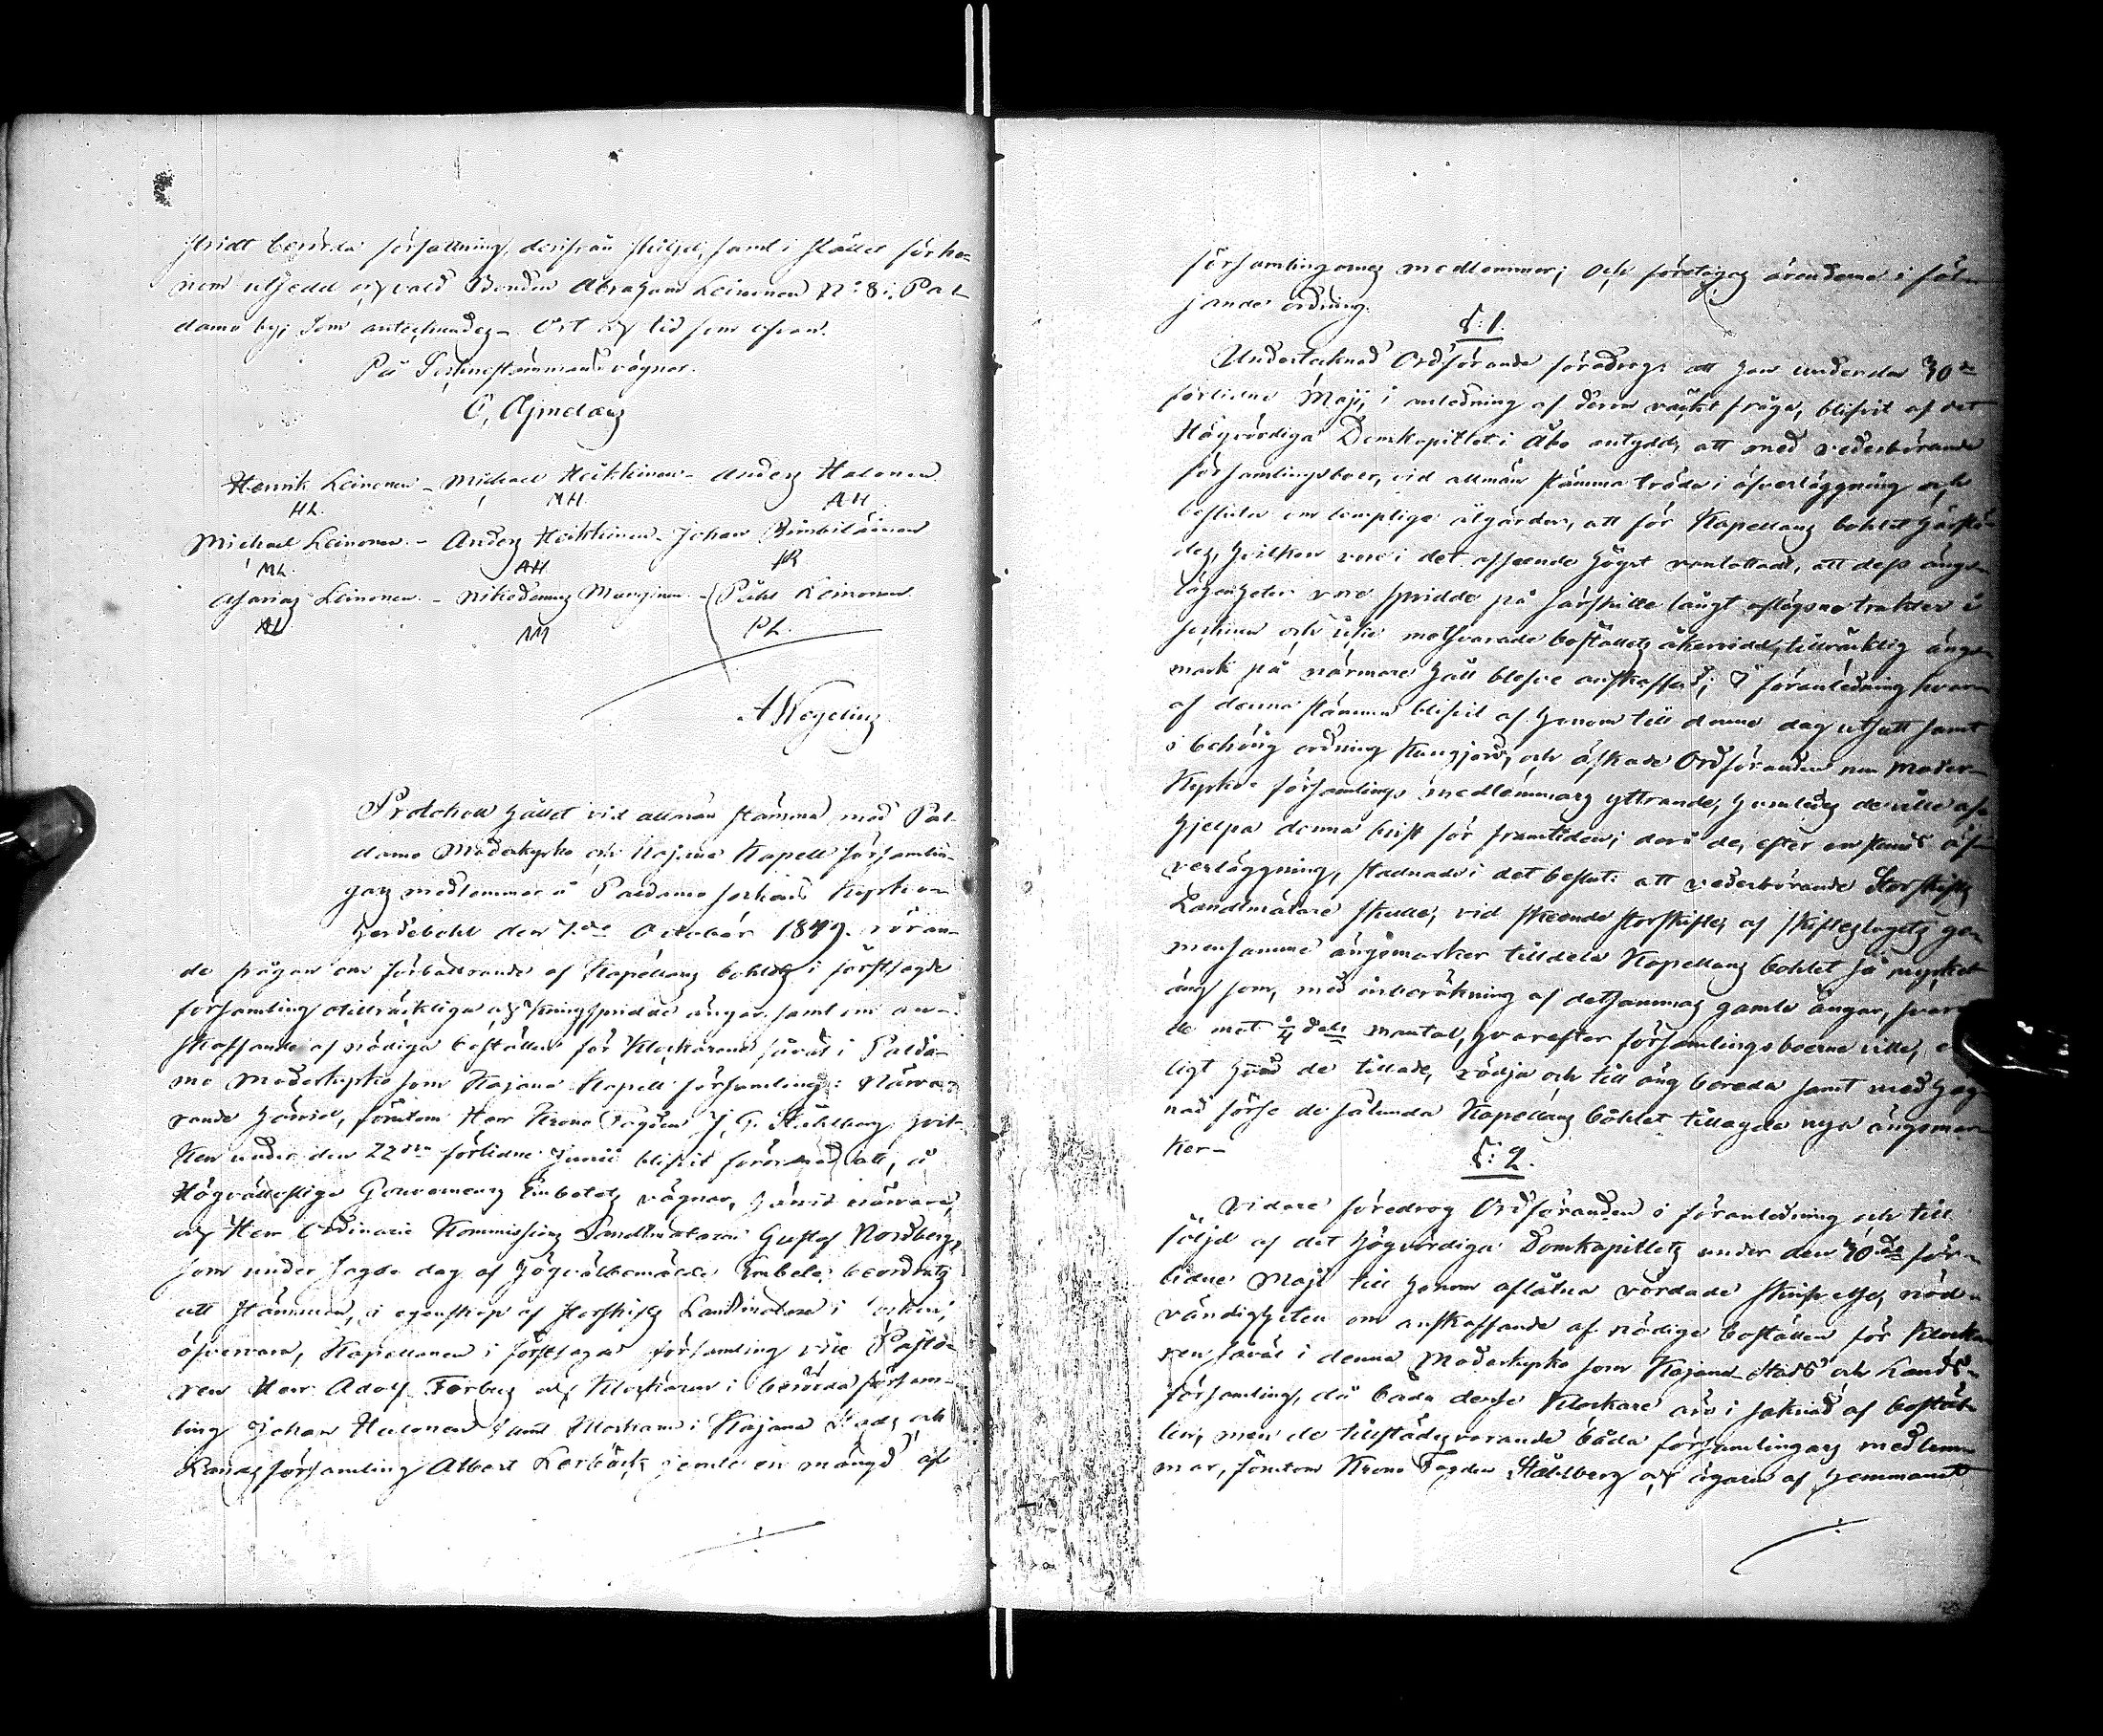 stridt berörda författning, derifrån skiljd, samt i stället för ho-
nom utsedd och vald Bonden Abraham Leinonen N:o 8 i Pal-
damo by; Som antecknades. Ort och tid som ofvan.
På Sockenstämmans vägnar.
C. Ajmelæus
Henrik Leinonen - Michael Heikkinen - Anders Halonen
HL. MH. AH.
Michael Leinonen - Anders Heikkinen - Johan
ML. AH
Asarias Leinonen - Nikodemus - Påhl Leinonen
AL PL.
A Wegelius
Protokoll hållet vid allmän stämma med Pal-
damo Moderkyrko och Kajana Kapell församlin-
gars medlemmar å Paldamo sockens Kyrkio-
herdebohl den 7:de October 1849. röran-
de frågan om förbättrande af Kapellans bohlets i förstsagde
församling otillräckliga och kringspridda ängar samt om an-
skaffande af nödiga boställen för Klockarene såväl i Palda-
mo Moderkyrko som Kajana Kapell församling: Närva-
rande härvid, förutom Herr Krono Fogden J. G. Ståhlberg, hvil-
ken under den 22:dra förlidne Junii blifvit förordnad att, å
Högvällofliga Gouverneurs Embetets vägnar, härvid närvara,
och Herr Ordinarie Kommissions Landtmätaren Gustaf Nordberg,
som under sagde dag af Högvälbemälde Embete beordrats
att stämman, i egenskap af Storskifts Landtmätare i socken,
öfvervara, Kapellanen i förstsagde församling vice Pasto-
ren Herr Adolf Forbus och Klockaren i berörda försam-
ling Johan Halonen samt Klockaren i Kajana Stads och
Landsförsamling Albert Lerbäck, jemte en mängd af
församlingarnes medlemmar; och företogos ärenderne i föl-
jande ordning.
§: 1.
Undertecknad Ordförande föredrog: att han under den 30:de
förlidne Maji, i anledning af derom väckt fråga, blifvit af det
Högvördiga Domkapitlet i Åbo antydd, att med vederbörande
församlingsboer, vid allmän stämma träda i öfverläggning och
besluta om lämpliga åtgärder, att för Kapellans bohlet härstä-
des, hvilken vore i det afseende högst vanlottadt, att dess ängs-
lägenheter vore spridda på särskilte långt aflägsna trakter i
socknen och icke motsvarade boställets åkervidd, tillräcklig ängs-
mark på närmare håll blefve anskaffad; I föranledning hvar-
af denna stämma blifvit af honom till denna dag utsatt samt
i behörig ordning kungjord, och äskade Ordföranden nu Moder-
Kyrko församlings medlemmars yttrande, huruledes de ville af-
hjelpa denna brist för framtiden; derå de, efter en stunds öf-
verläggning, stadnade i det beslut: att vederbörande Storskifts
Landtmätare skulle, vid skeende storskifte, af skifteslagets ge-
mensamma ängsmarker tilldela Kapellans bohlet så mycket
äng som, med inberäkning af detsammas gamla ängar, svara-
de mot ¼ dels mantal, hvarefter församlingsboerne ville,
ligt hvad de tillade, rödja och till äng bereda samt med häg-
nad förse de sålunda Kapellans bohlet tillagda nya ängsmar-
ker -
§: 2.
Vidare föredrog Ordföranden i föranledning och till
följd af det Högvördiga Domkapitlets under den 30:de för-
lidne Maji till honom aflåtna vördade skrifvelse, nöd-
vändigheten om anskaffande af nödiga boställen för Klocka-
ren såväl i denna Moderkyrko som Kajana Stads och Lands-
församling, då båda desse Klockare äro i saknad af bostäl-
len, men de tillstädesvarande båda församlingars medlem-
mar, förutom Krono Fogden Ståhlberg och ägaren af hemmanet